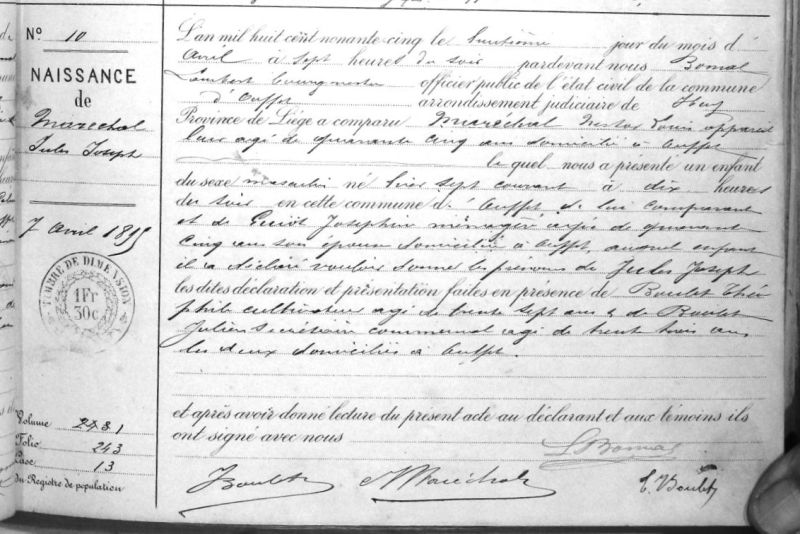 N° 10
NAISSANCE
de
Maréchal
Jules Joseph
7 Avril 1895
TIMBRE DE DIMENSION
1Fr
30c
Volume 2481
Folio 243
Case 13
du Registre de population
L'an mil huit cent nonante cinq le huitième jour du mois d'
Avril à sept heures du soir pardevant nous Bomal
Lambert bourgmestre officier public de l'état civil de la commune
d'Ouffet arrondissement judiciaire de Huy
Province de Liége a comparu Maréchal Nestor Louis appareil
leur agé de quarante cinq ans domicilié à Ouffet
le quel nous a présenté un enfant
du sexe masculin né hier sept courant à dix heures
du soir en cette commune d'Ouffet de lui comparant
et de Josephine ménagère agée de quarante
cinq ans son épouse domiciliée à Ouffet, auquel enfant
il a déclaré vouloir donner les prénoms de Jules Joseph
les dites déclaration et présentation faites en présence de Boulet Théo
phile cultivateur agé de trente sept ans & de Boulet
Julien secrétaire communal agé de trente trois ans
les deux domiciliés à Ouffet.
et après avoir donné lecture du présent acte au déclarant et aux témoins ils
ont signé avec nous
L Bomal
J Boulet N Maréchal T. Boulet